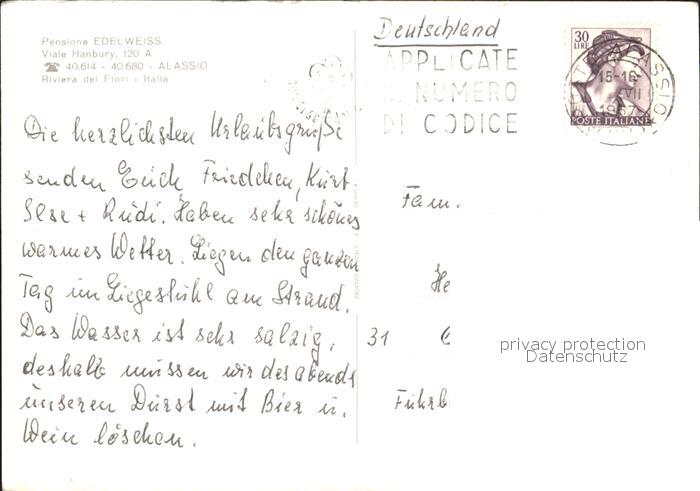 Pensione EDELWEISS
Viale Hanbury, 120 A
☎ 40.614 - 40.680 - ALASSIO
Riviera dei Fiori - Italia
Die herzlichsten Urlaubsgrüße
senden Euch Friedchen, Kurt
Ilse + Rudi. Haben sehr schönes
warmes Wetter. Liegen den ganzen
Tag im Liegestühl am Strand.
Das Wasser ist sehr salzig,
deshalb müssen wir des abends
unseren Durst mit Bier u.
Wein löschen.
Deutschland
APPLICATE
NUMERO
DI CODICE
30
LIRE
POSTE ITALIANE
ALASSIO
15-16
VII
1967
Fam.
He
31
Führb
privacy protection
Datenschutz